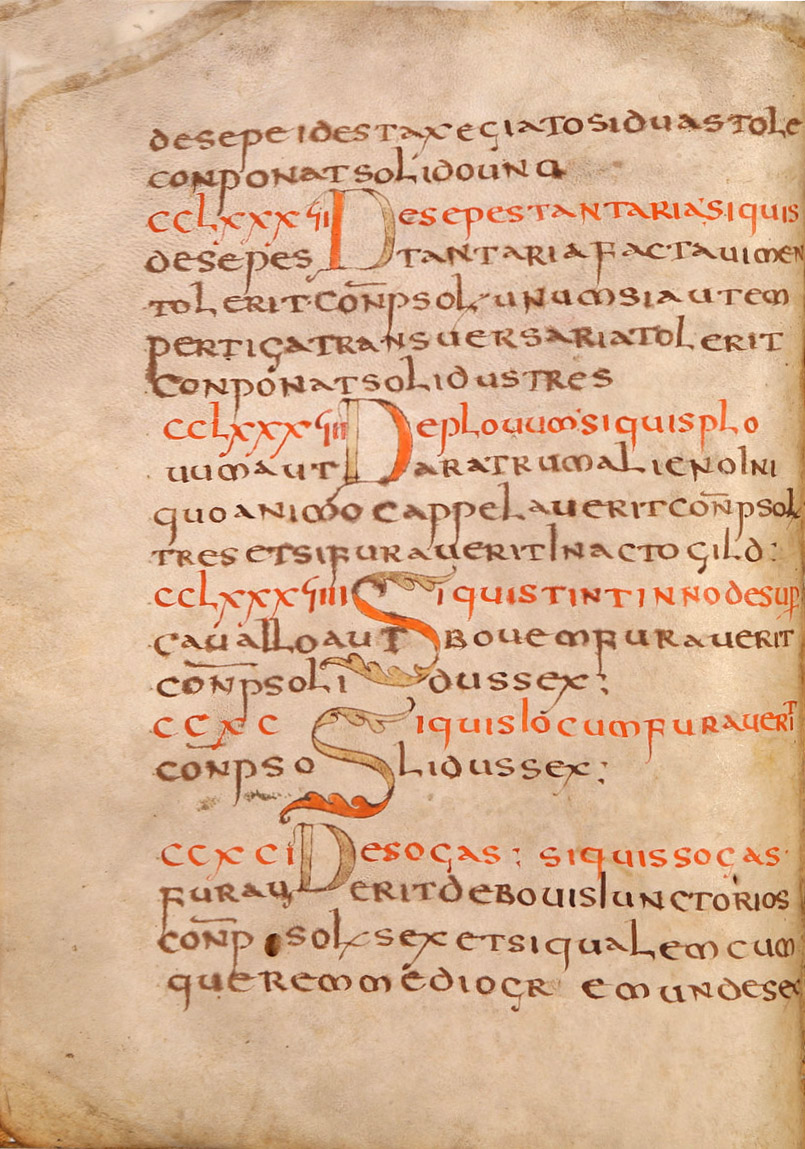 desepeidestaxegiatosiduastole
conponatsolidouno
cclxxxvii Desepestantariasiquis
desepes tantariafactauimen
tolerit conpsol unumsiautem
pertigatransuersariatolerit
conponatsolidustres
cclxxxviii Deplouumsiquisplo
uumaut aratrumalienoini
quoanimo cappelaueritconpsol
tresetsifurauerit In actogild:
cclxxxviiii Siquistintinnodesup
caualloaut bouemfurauerit
conpsoli dussex;
ccxc Siquislocumfurauerit
conpso lidussex;
ccxci Desogas; siquissogas
furau eritdebouisiunctorios
conp solsexetsiqualemcum
queremmediogr emundese